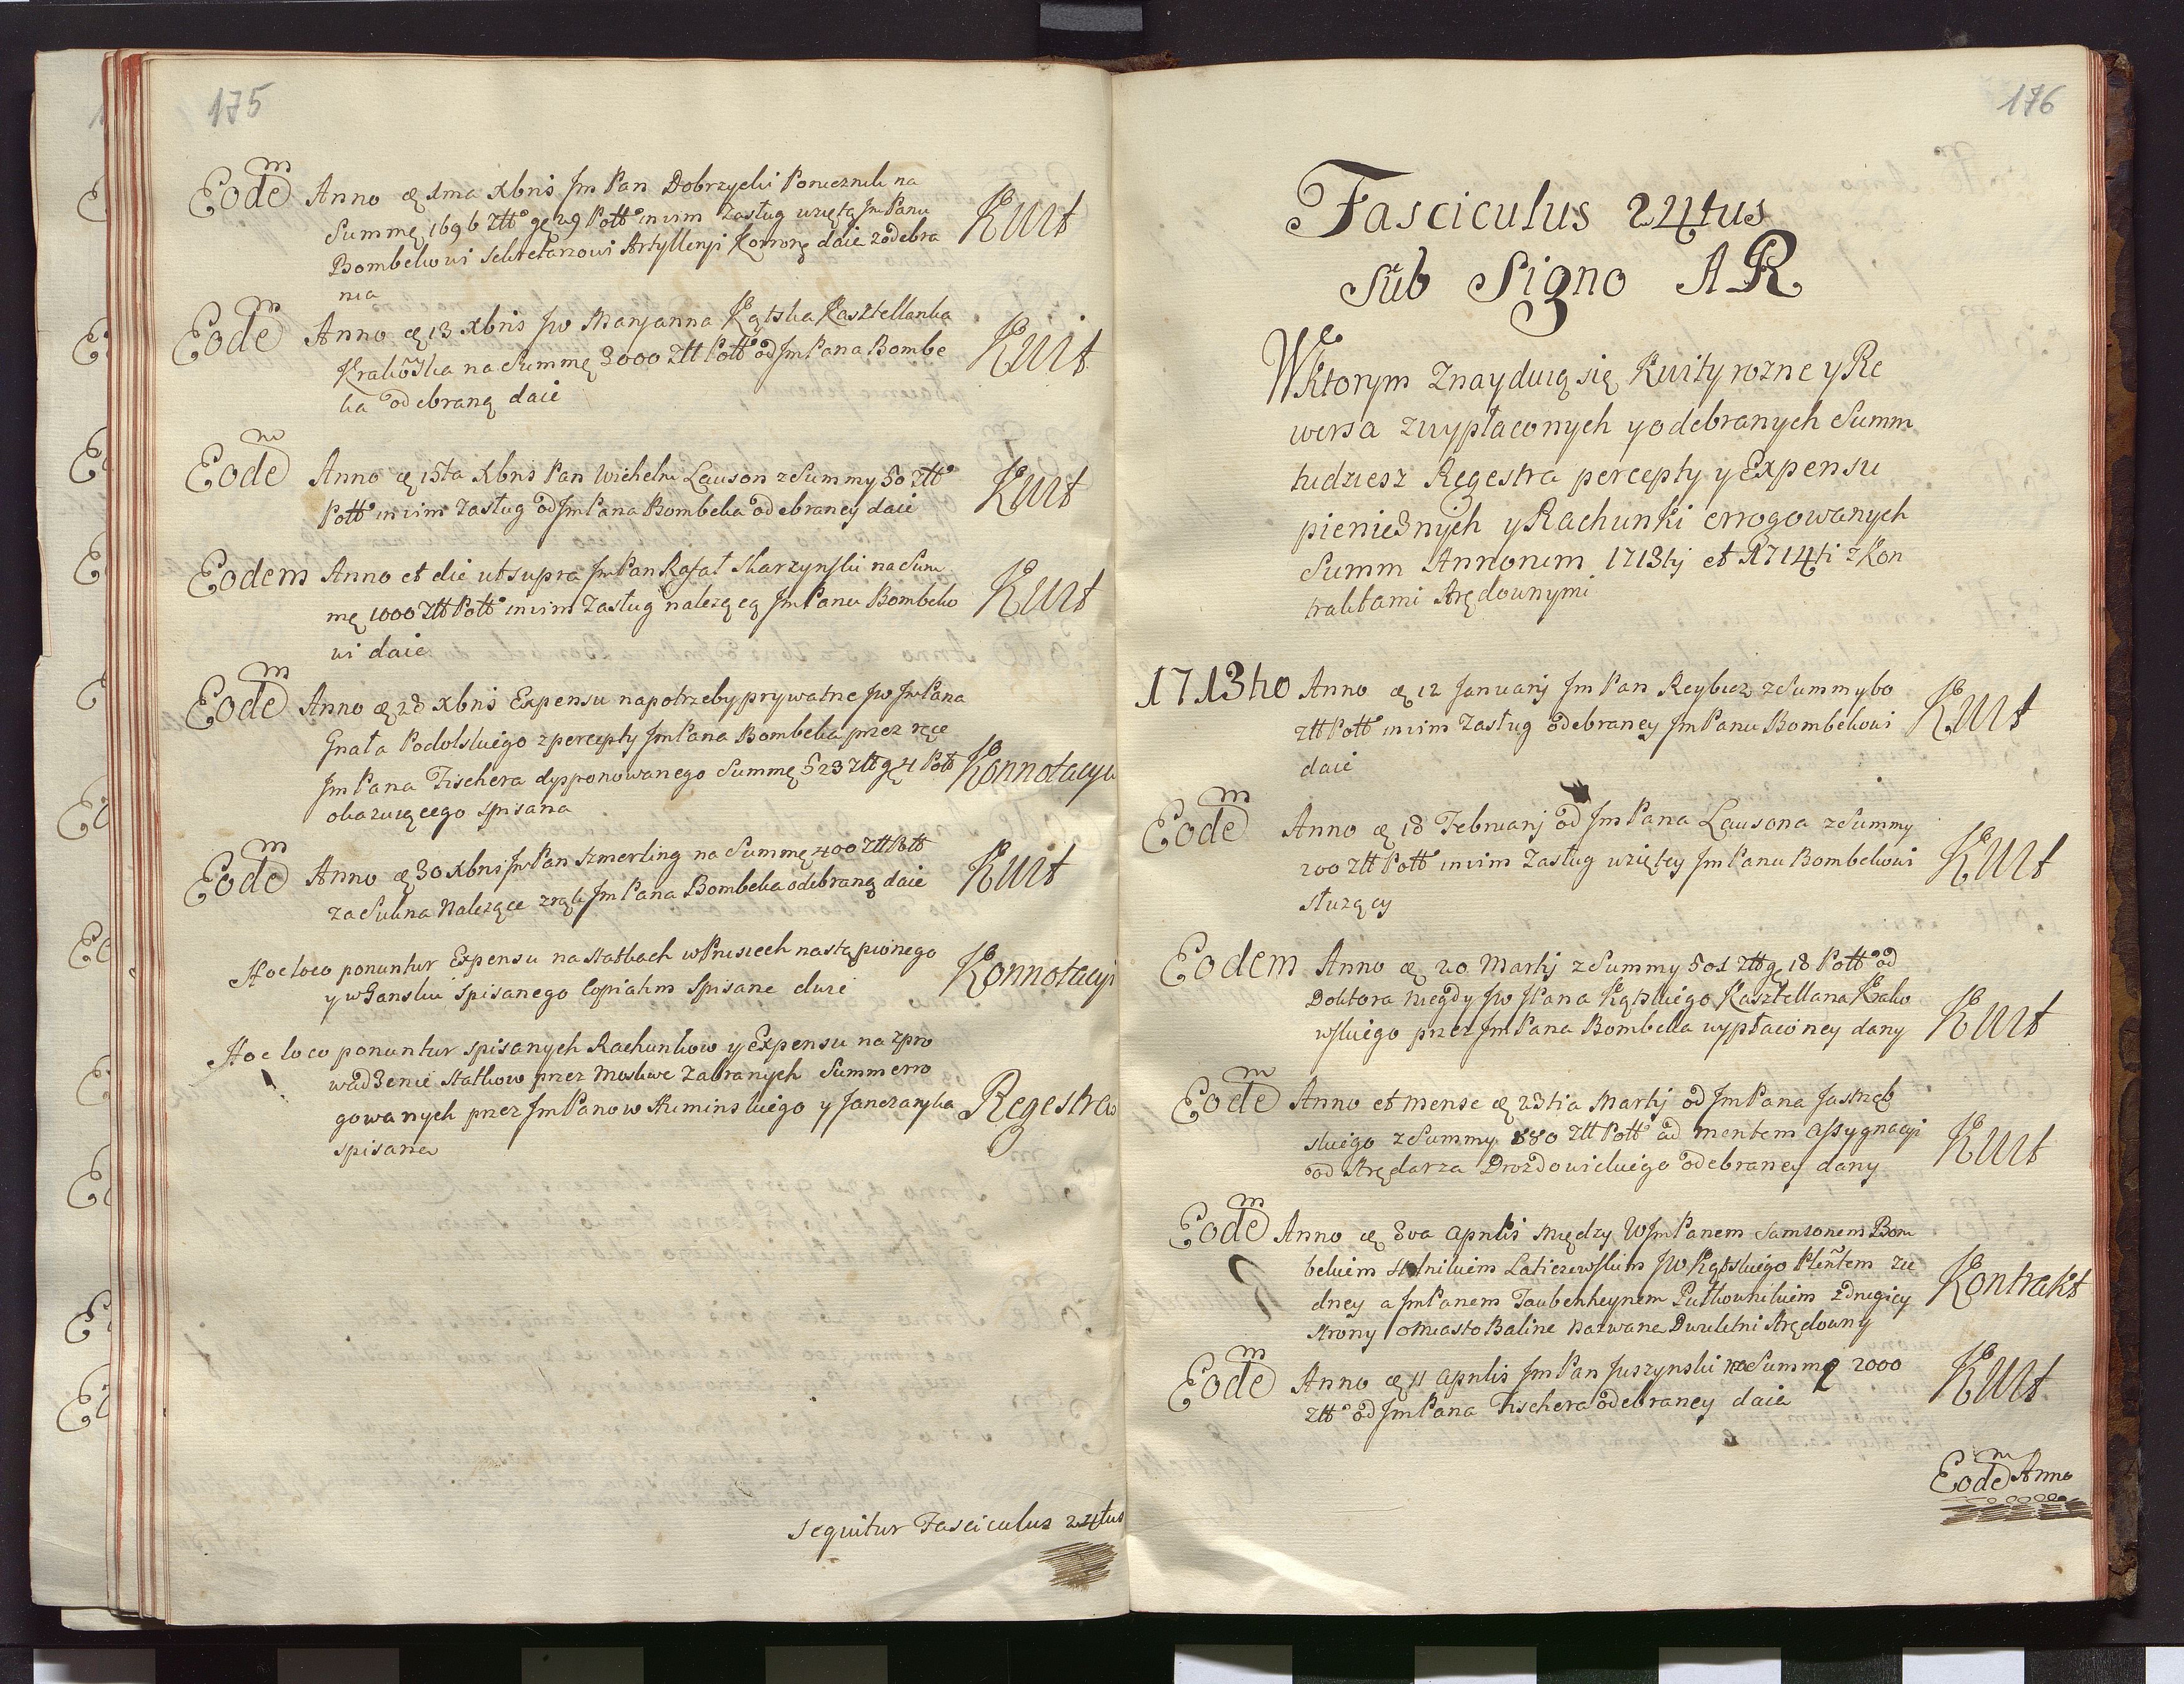 175
Eodem Anno æ 1ma Xbris Jm Pan Dobrzycki Porucznik na Kwit
Summę 1696 Ztt° gę 29 Pott° in vim Zasług wziętą Jm Panu
Bombekowi Sekretarzowi Artylleryi Koronę daie z odebra
nia
Eodem Anno æ 13 Xbris Jw Maryanna Kątska Kasztellanka Kwit
Krakowska na Summę 3000 Ztt Pott° od Jm Pana Bombe
ka odebraną daie
Eodem Anno æ 15ta Xbris Pan Wichelm Lauson z Summy 50 Ztt° Kwit
Pott° in vim Zasług od Jm Pana Bombeka odebraney daie
Eodem Anno et die ut supra Jm Pan Rafał Skarzynski na Sum Kwit
mę 1000 Ztt Pott° in vim Zasług należącą Jm Panu Bombeko
wi daie
Eodem Anno æ 28 Xbris Expensu na potrzeby prywatne Jw Jm Pana
Gnata Podolskiego z percepty Jm Pana Bombeka przez ręce
Jm Pana Fischera dysponowanego Summę 523 Ztt gę 4 Pott Konnotacya
okazuiącego spisana
Eodem Anno æ 30 Xbris Jm Pan Szmerling na Summę 400 Ztt Pott Kwit
za Sukna Należące z rąk Jm Pana Bombeka odebraną daie
Hoc loco ponuntur Expensu na statkach w Prusiech nastąpionego Konnotacyi
y w Gansku spisanego Copiatim Spisane dwie
Hoc loco ponuntur spisanych Rachunkow y Expensu na zpro
wadzenie statkow przez Moskwe Zabranych Summ erro
gowanych przez Jm Panow Kuminskiego y Janczaryka Regestra
spisane
sequitur Fasciculus 24tus
176
Fasciculus 24tus
Sub Signo AR
W Ktorym Znayduią się Kwity rozne y Re
wersa z wypłaconych y odebranych Summ
tudziesz Regestra percepty y Expensu
pieniężnych y Rachunki errogowanych
Summ Annorum 1713tij et 1714ti z Kon
traktami Arędownymi
1713tio Anno æ 12 Januarij Jm Pan Reybiez z Summy 60 Kwit
Ztt Pott° in vim Zasług odebraney Jm Panu Bombekowi
daie
Eodem Anno æ 18 Februarij od Jm Pana Lausona z Summy
200 Ztt Pott° in vim Zasług wziętey Jm Panu Bombekowi Kwit
służący
Eodem Anno æ 20 Martij z Summy 501 Ztt gę 18 Pott° od
Doktora niegdy Jw JPana Kątskiego Kasztellana Krako
wskiego przez Jm Pana Bombeka wypłaconey dany Kwit
Eodem Anno et mense æ 23tia Martij od Jm Pana Jastrzęb
skiego z Summy 880 Ztt Pott° ad mentem assygnacyi Kwit
od Arędarza Drozdowickiego odebraney dany
Eodem Anno æ 3va Aprilis między WJm Panem Samsonem Bom
bekiem Stolnikiem Latiezewskim JW Kątskiego Pleñtem z ie Kontrakt
dney a Jm Panem Taubenheynem Pułkownikiem z drugiey
strony o Miasto Baline nazwane Dwuletni Arędowny
Eodem Anno æ 11 Aprilis Jm Pan Juszynski na Summę 2000 Kwit
Ztt° od Jm Pana Fischera odebraney daie
Eodem Anno